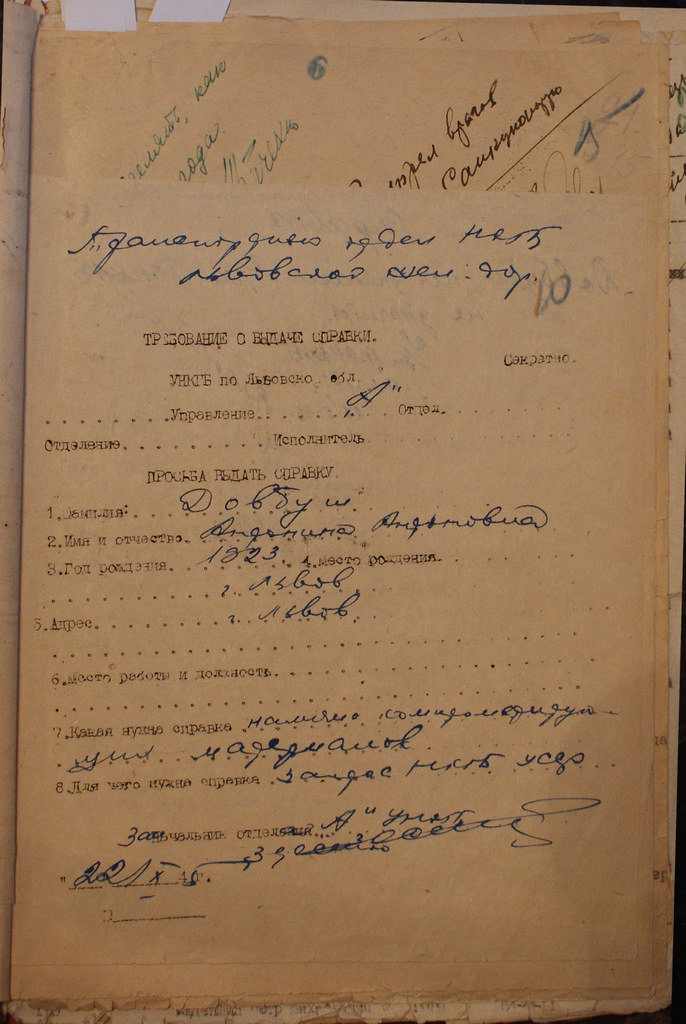 6
как
года
врагов
15
Транспортный отдел НКГБ
Львовской жел. дор.
10
ТРЕБОВАНИЕ О ВЫДАЧЕ СПРАВКИ.
Секретно.
УНКГБ по Львовско обл.
Управление "А" Отдел.
Отделение Исполнитель
ПРОСЬБА ВЫДАТЬ СПРАВКУ
1.Фамилия: Довбуш
2.Имя и отчество Антонина Антоновна
3.Год рождения 1923. 4.Место рождения
г. Львов
5.Адрес г. Львов.
6.Место работы и должность
7.Какая нужна справка наличие компрометирую-
щих материалов
8.Для чего нужна справка запрос НКГБ УССР
Зам Начальник отделения "А" УНКГБ
"22" X 45 г.